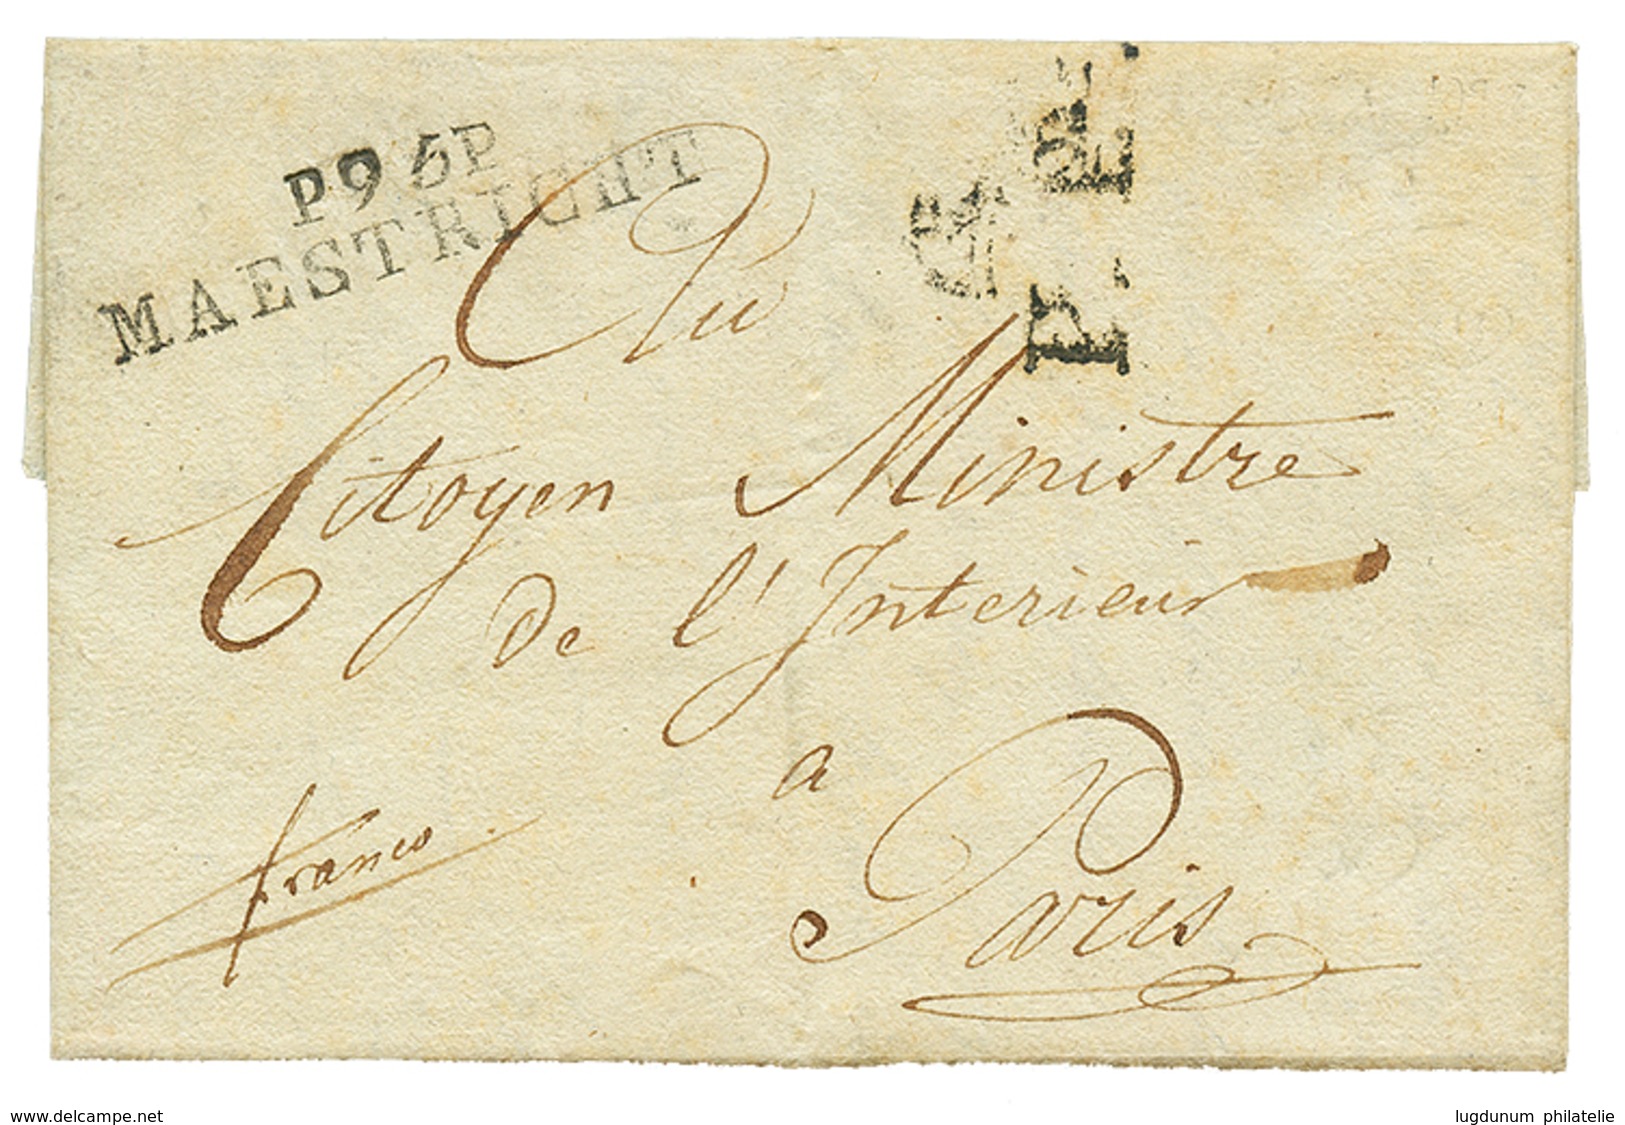 P96P
MAESTRICHT
Au
Citoyen Ministre
de l'Interieur
a
Paris
franco
delcampe.net
lugdunum philatelie